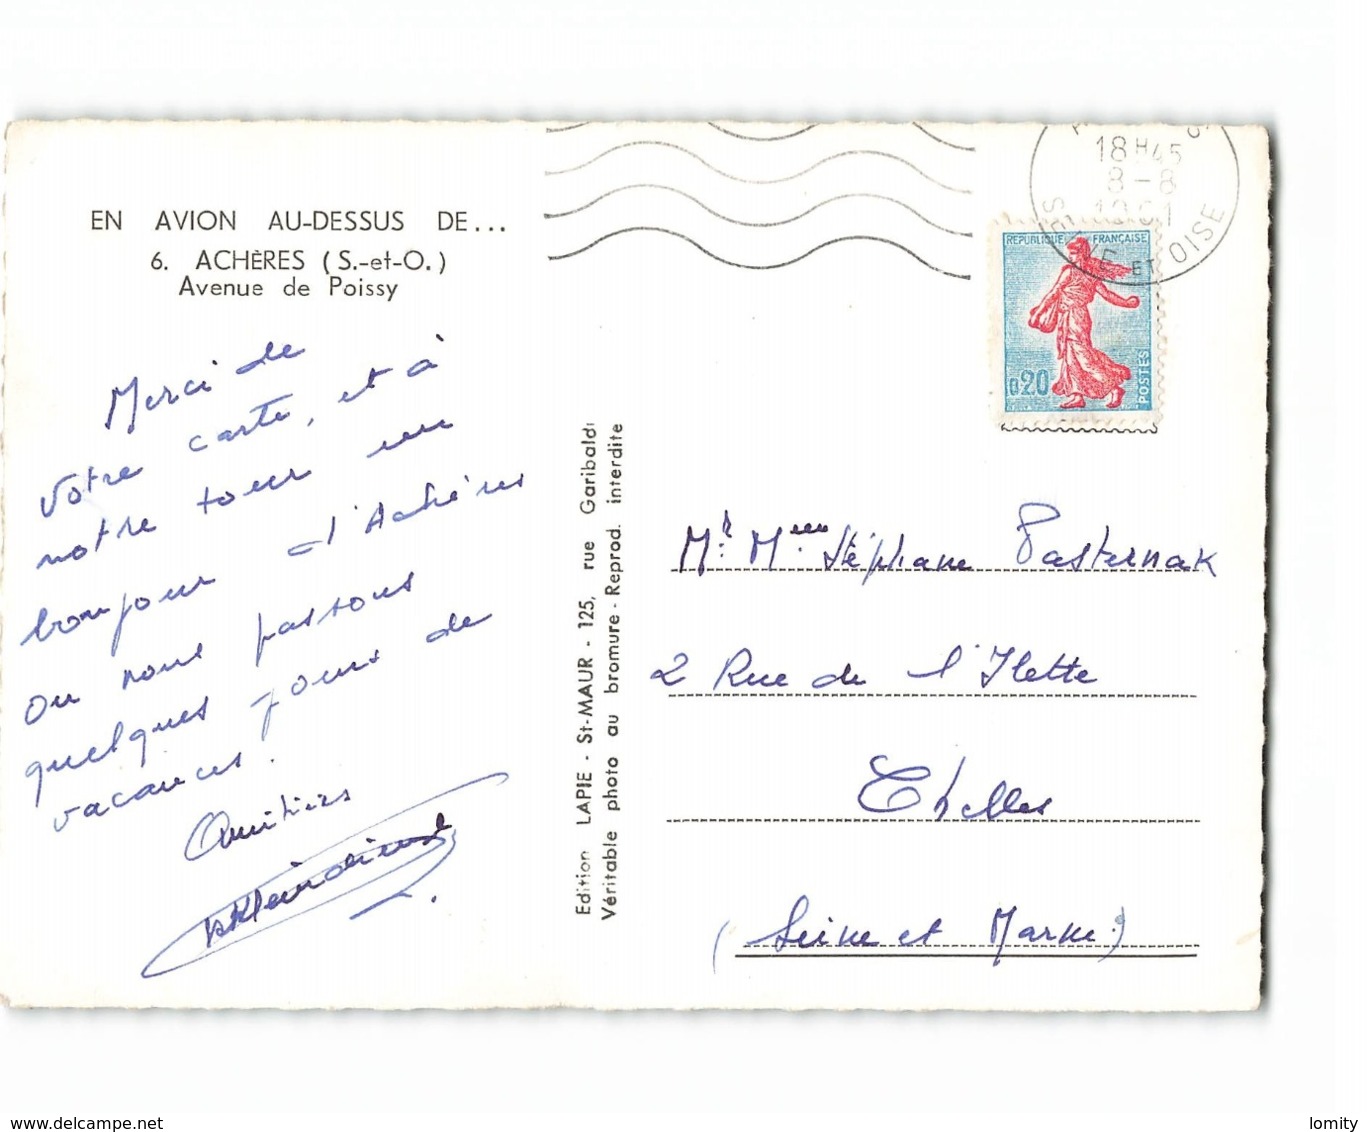 EN AVION AU-DESSUS DE...
6. ACHÈRES (S.-et-O.)
Avenue de Poissy
Merci de
votre carte, et à
notre tour un
bonjour d'Achères
ou nous passons
quelques jours de
vacances.
Amitiés
Edition LAPIE - St-MAUR - 125, rue Garibaldi
Véritable photo au bromure - Reprod. interdite
18H45
8-8
1961
SEINE ET OISE
REPUBLIQUE FRANÇAISE
0,20
POSTES
Mr. Mme Stéphane Pasternak
2 Rue de l'Ilette
Chelles
(Seine et Marne)
www.delcampe.net
lomity